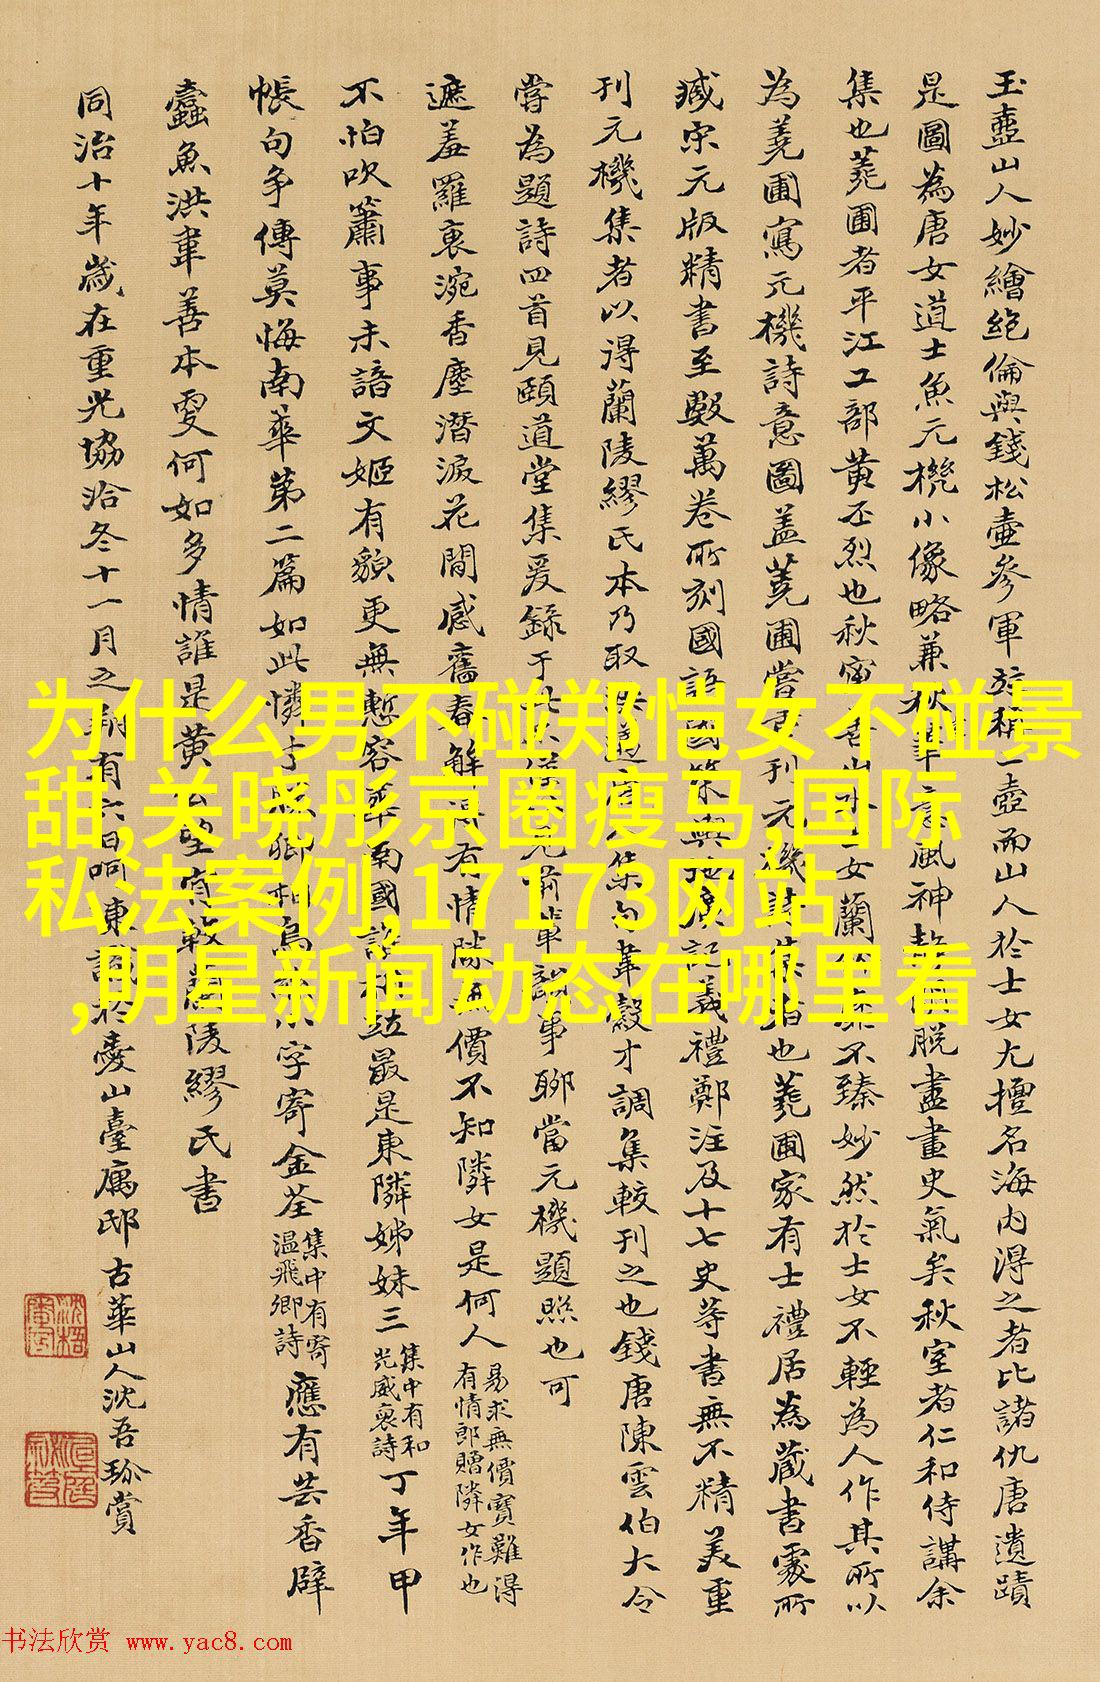 玉壺山人妙繪絶倫與錢松壷參軍並稱一壺而山人於士女尤擅名海内得之者比諸仇唐遺蹟
是圖為唐女道士魚元機小像略兼秋意風神脱盡畫史氣矣秋室者仁和侍講余
集也蕘圃者平江工部黄丕烈也秋室不臻妙然於士女不輕為人作其所以
為蕘圃寫元機詩意圖盖蕘圃嘗刊元機詩集者也蕘圃家有士禮居為藏書處所
臧宋元版精書至數萬卷所刻國語國策與記義禮鄭注及十七史等書無不精美重
刊元機集者以得蘭陵繆氏本乃取唐人集韋縠才調集較刊之也錢唐陳雲伯大令
嘗為題詩四首見頤道堂集爰錄于前輩韻事聊當元機題照也可
遮羞羅裏涴香塵潜淚花間感舊春解得有情價不知隣女是何人
易求無價寶難得
有情郎贈隣女作也
不怕吹簫事未諳文姬有貌更無慙容華南國最是東隣姊妹三
集中有和
光威裒詩
丁年甲
帳句争傳莫悔南華第二篇如此憐才卿相字寄金荃
集中有寄
温飛卿詩
應有芸香辟
蠹魚洪韋善本更何如多情誰是黄蘭陵繆氏書
同治十年歲在重光協洽冬十一月之朔有六日於臺寓邸古華山人沈吾珎賞
为什么男不碰郑恺女不碰景
甜,关晓彤京圈瘦马,国际
私法案例,17173网站
,明星新闻动态在哪里看
书法欣赏 www.yac8.com